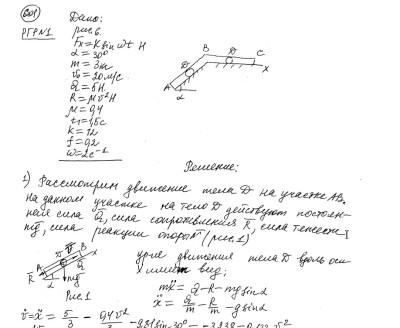 Дано:
РГР N1
рис. 6.
Fx = K sin ωt H
α = 30°
m = 3кг
v₀ = 20 м/с
Q = 5H
R = μv²H
μ = 0,4
t₁ = 1,5с
K = 12
f = 0,2
ω = 2c⁻¹
A
B
C
D
D
α
x
Решение:
1) Рассмотрим движение тела D на участке AB.
на данном участке на тело D действуют постоян-
ная сила Q, сила сопротивления R, сила тяжести
mg, сила реакции опоры (рис. 1)
движения тела D вдоль оси
x имеет вид:
mẍ = Q - R - mg sin α
ẍ = Q/m - R/m - g sin α
A
B
D
R
Q
α
mg
x
Рис. 1
v̇ = ẍ = 5/3 - 0,4v²/3 - 9,81 sin 30° =